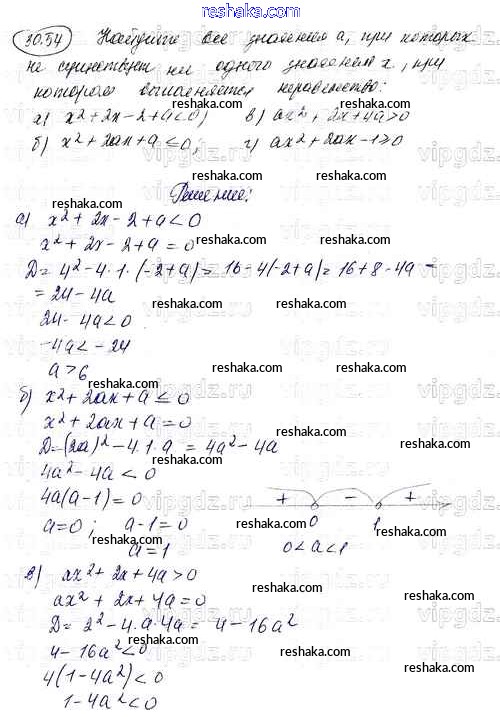 reshaka.com
30.54 Найдите все значения а, при которых
не существует ни одного значения х, при
котором выполняется неравенство:
а) x² + 2x - 2 + a < 0; в) ax² + 2x + 4a > 0
б) x² + 2ax + a ≤ 0; г) ax² + 2ax - 1 ≥ 0
reshaka.com
Решение:
а) x² + 2x - 2 + a < 0
reshaka.com
x² + 2x - 2 + a = 0
reshaka.com
D = 4² - 4 · 1 · (-2 + a) = 16 - 4(-2 + a) = 16 + 8 - 4a =
= 24 - 4a
reshaka.com
24 - 4a < 0
reshaka.com
-4a < -24
reshaka.com
a > 6
reshaka.com
б) x² + 2ax + a ≤ 0
reshaka.com
x² + 2ax + a = 0
reshaka.com
D = (2a)² - 4 · 1 · a = 4a² - 4a
reshaka.com
4a² - 4a < 0
reshaka.com
4a(a - 1) = 0 + - +
reshaka.com
a = 0; a - 1 = 0 0 1
reshaka.com
a = 1 0 < a < 1
reshaka.com
в) ax² + 2x + 4a > 0
reshaka.com
ax² + 2x + 4a = 0
reshaka.com
D = 2² - 4 · a · 4a = 4 - 16a²
reshaka.com
4 - 16a² < 0
reshaka.com
4(1 - 4a²) < 0
reshaka.com
1 - 4a² < 0
reshaka.com